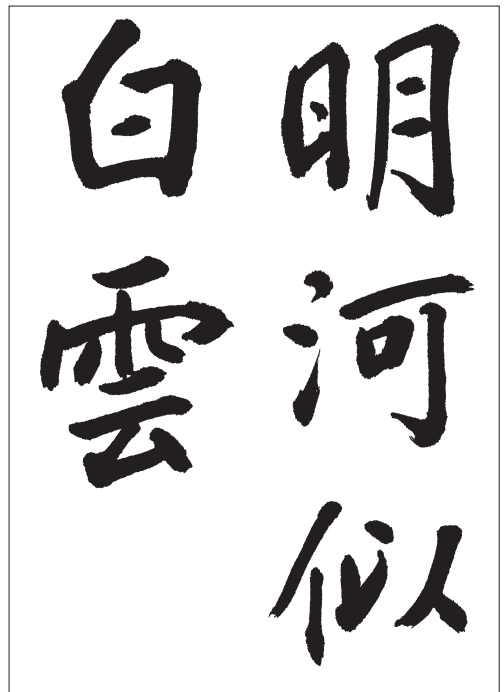 明河似
白雲